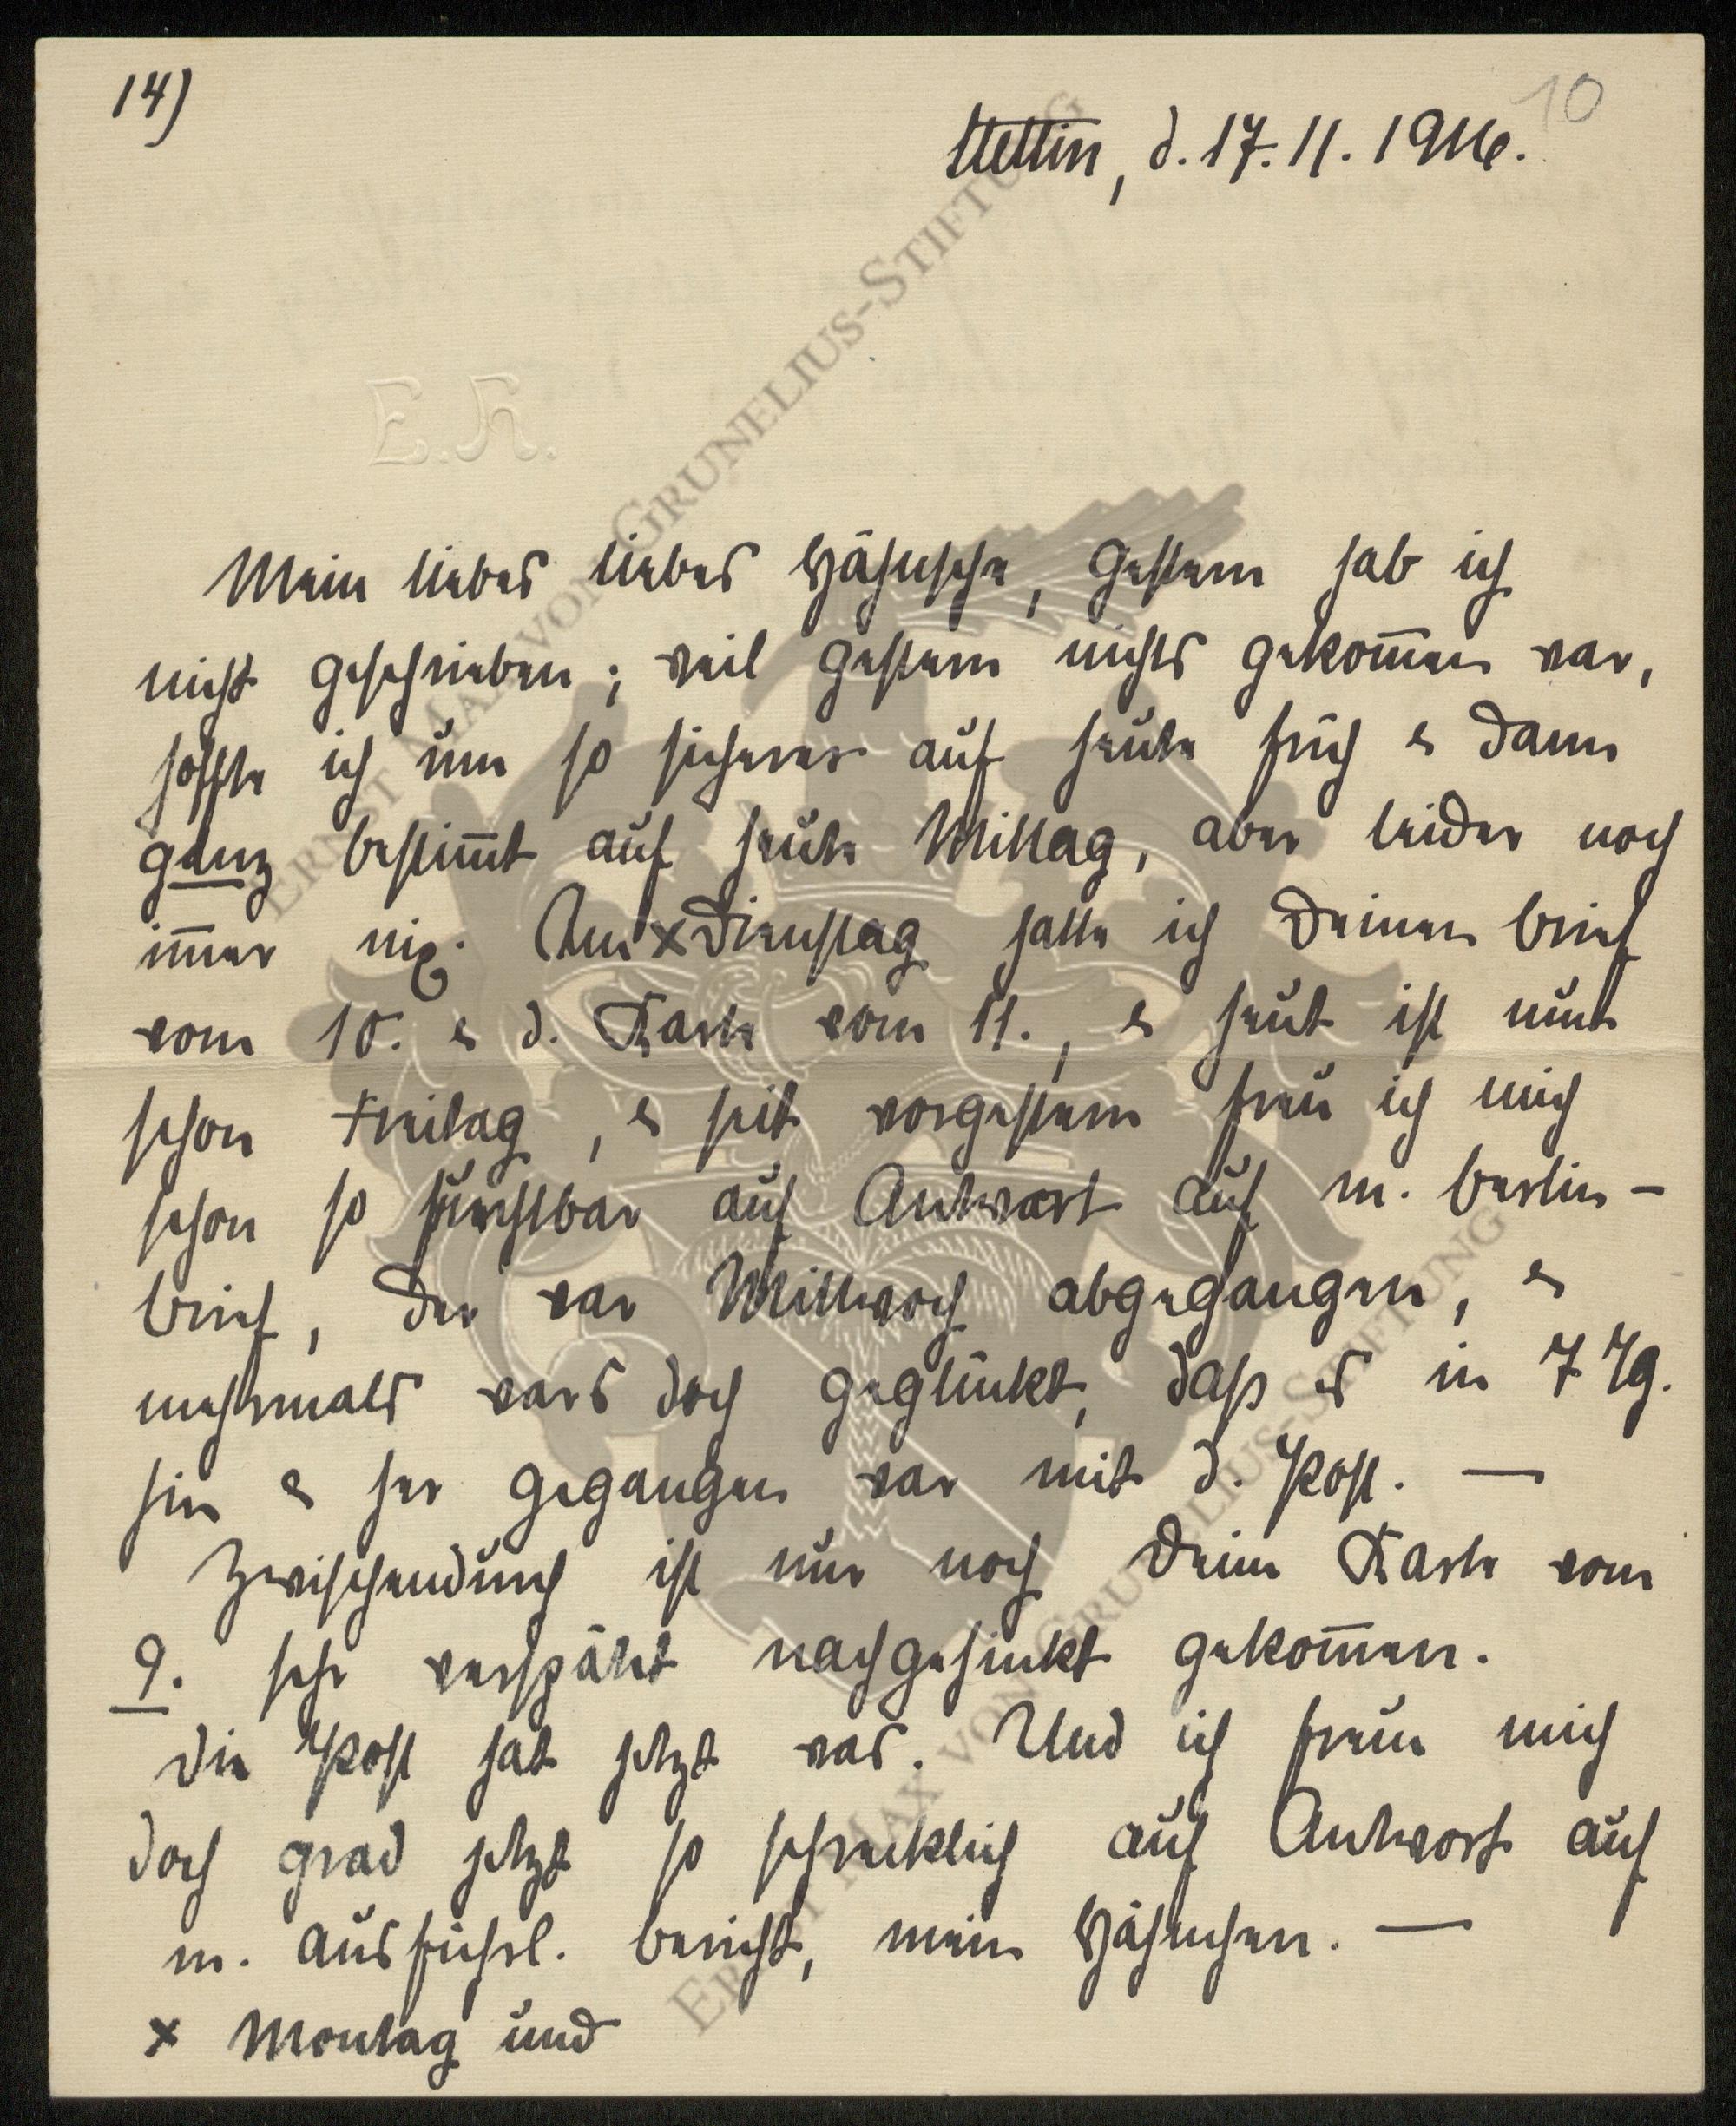 14)
10
Stettin, d. 17. 11. 1916.
E.K.
Mein liebes liebes Hähnsche, gestern hab ich
nicht geschrieben; weil gestern nichts gekom̅en war,
hoffte ich um so sicherer auf heute früh & dann
ganz bestim̅t auf heute Mittag, aber leider noch
im̅er nix. Am x Dienstag hatte ich Deinen Brief
vom 10. & d. Karte vom 11., & heut ist nun
schon Freitag, & seit vorgestern freu ich mich
schon so furchtbar auf Antwort auf m. Berlin-
brief, der war Mittwoch abgegangen, &
mehrmals wars doch geglückt, daß es in 7 Tg.
hin & her gegangen war mit d. Post. —
Zwischendurch ist nur noch Deine Karte vom
9. sehr verspätet nachgehinkt gekom̅en.
Die Post hat jetzt was. Und ich freue mich
doch grad jetzt so schrecklich auf Antwort auf
m. ausführl. Bericht, mein Hähnchen. —
x Montag und
ERNST MAX VON GRUNELIUS-STIFTUNG
ERNST MAX VON GRUNELIUS-STIFTUNG